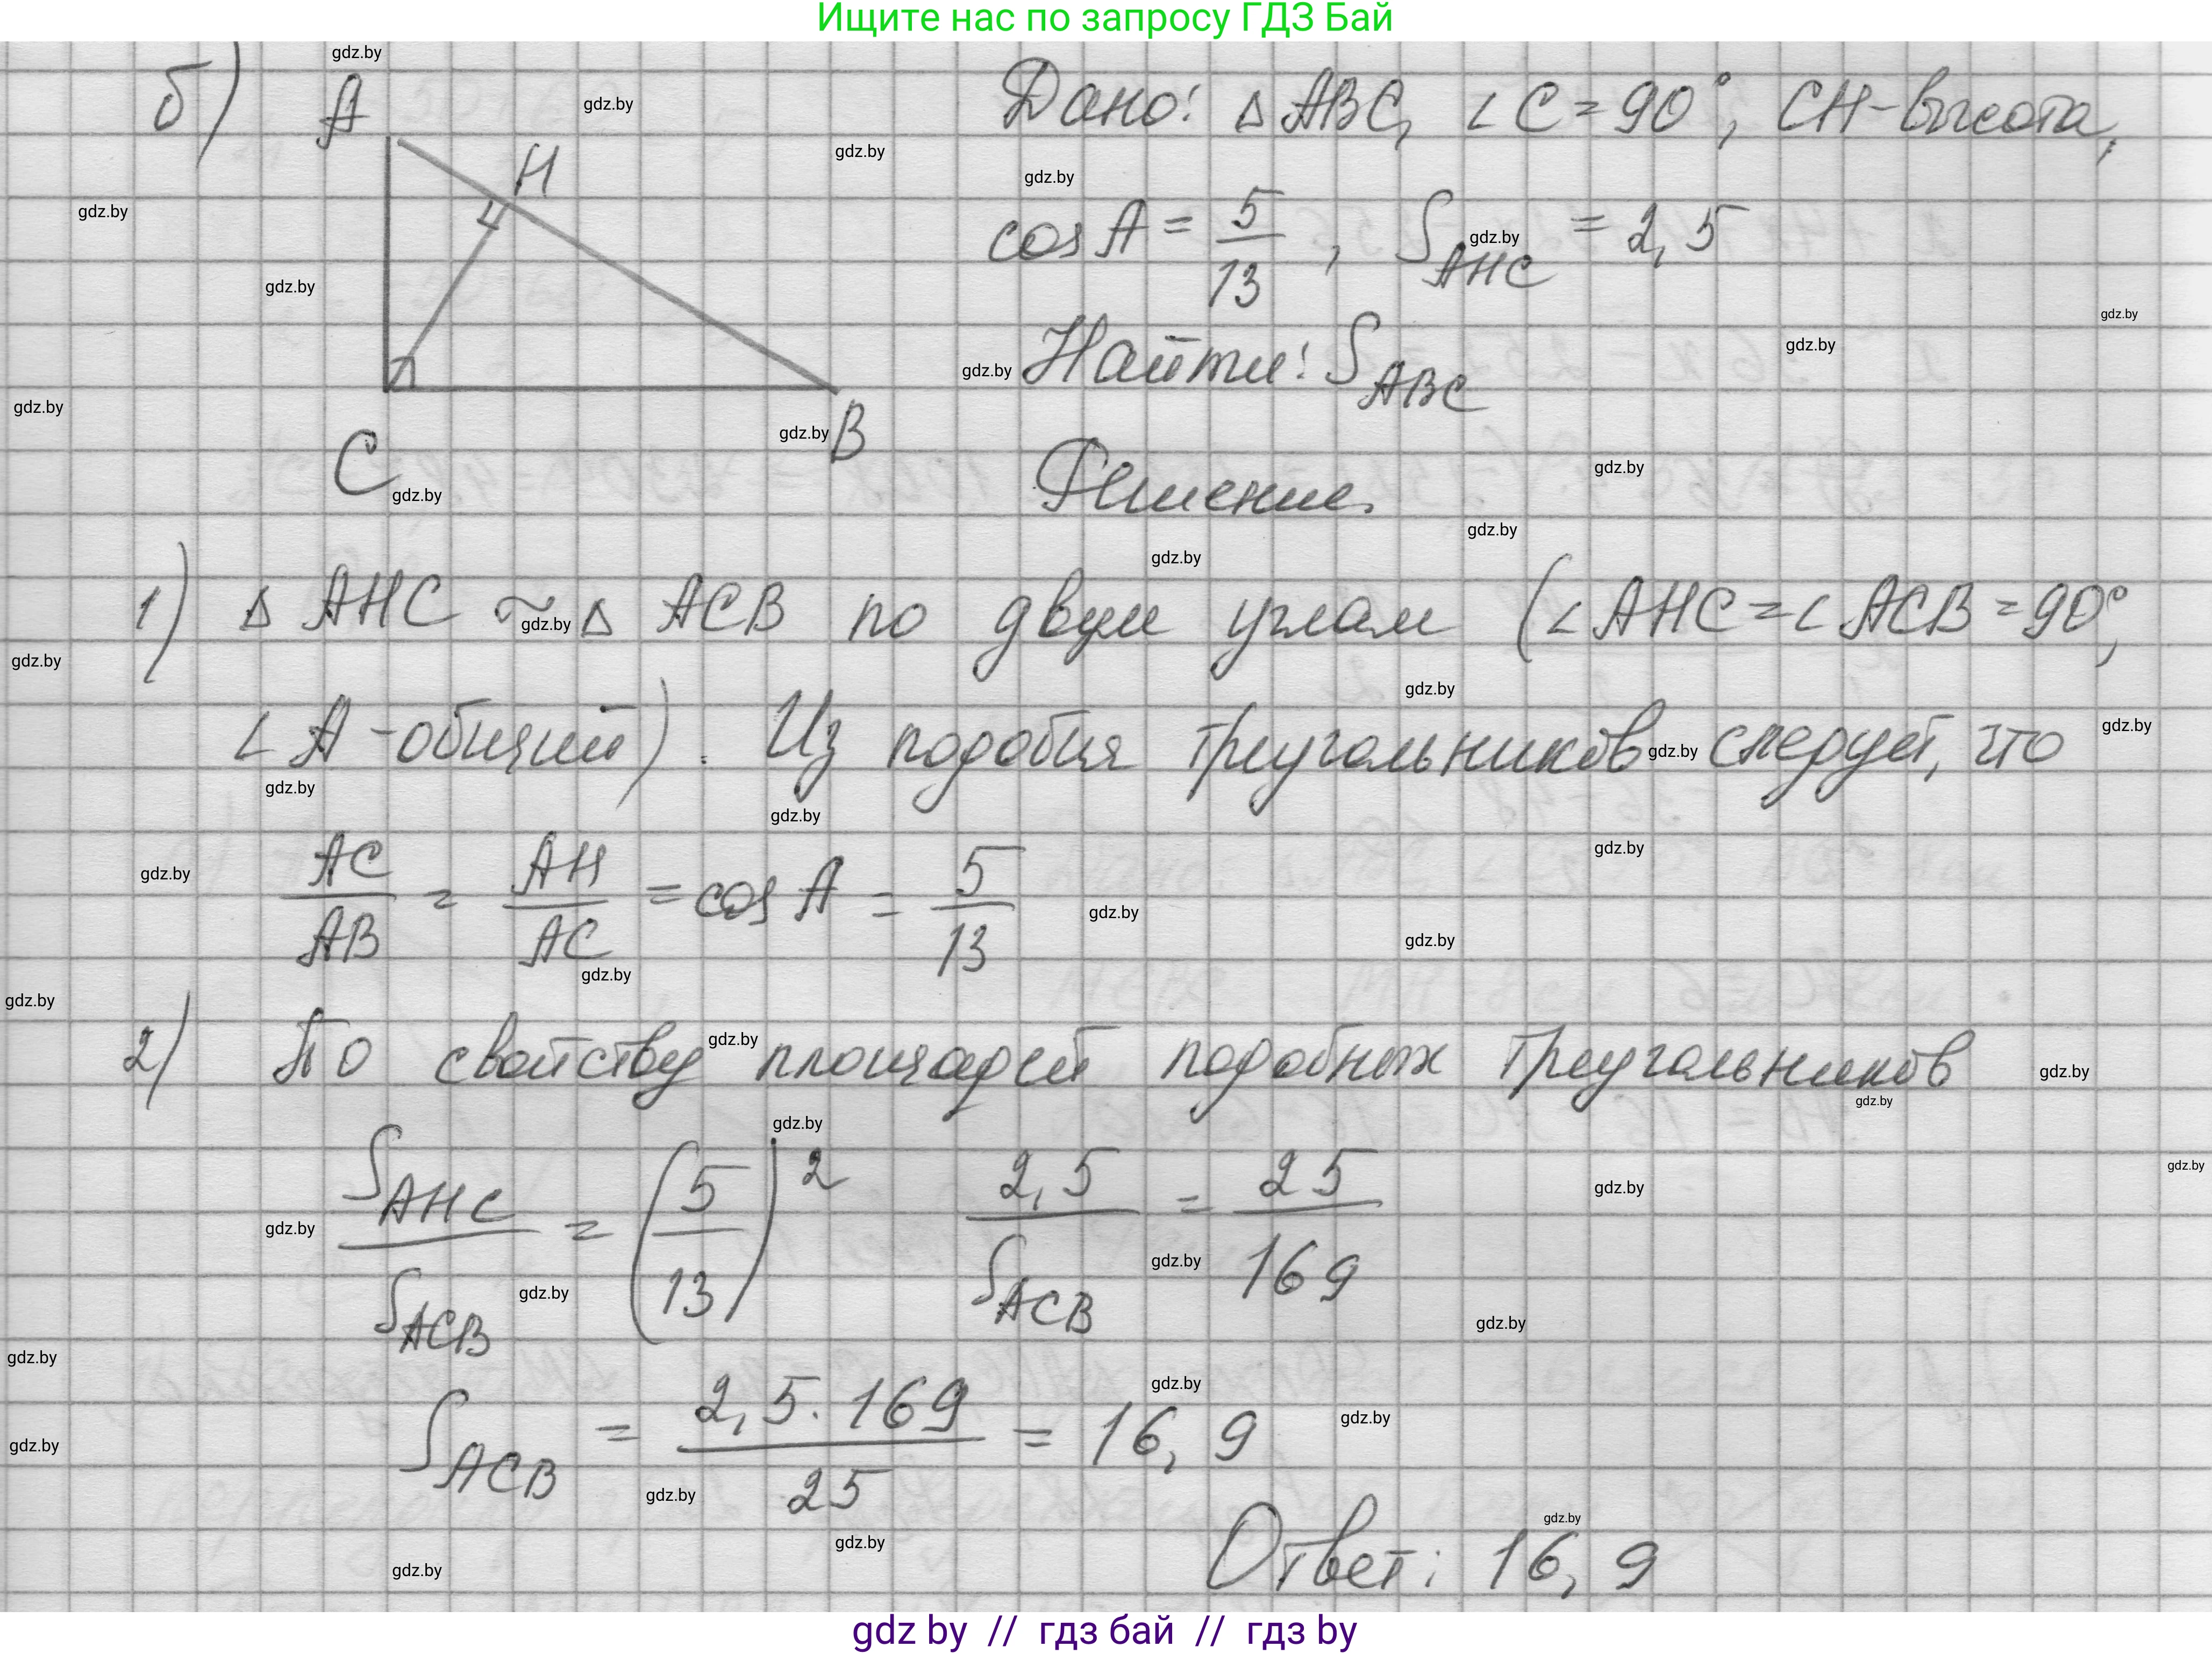 Ищите нас по запросу ГДЗ Бай
б)
A
H
C
B
Дано: △ABC, ∠C=90°, CH-высота,
cos A = 5/13, S_AHC = 2,5
Найти: S_ABC
Решение.
1) △ AHC ~ △ ACB по двум углам (∠AHC=∠ACB=90°,
∠A-общий). Из подобия треугольников следует, что
AC/AB = AH/AC = cos A = 5/13
2) По свойству площадей подобных треугольников
S_AHC/S_ACB = (5/13)² 2,5/S_ACB = 25/169
S_ACB = 2,5·169/25 = 16,9
Ответ: 16,9
gdz by // гдз бай // гдз by